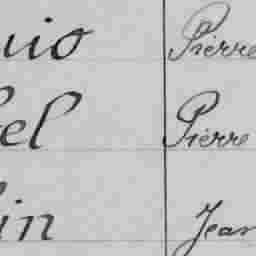 uio Pierre
el Pierre
in Jean